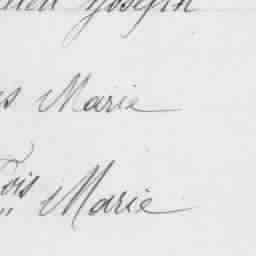 Joseph
s Marie
ois Marie